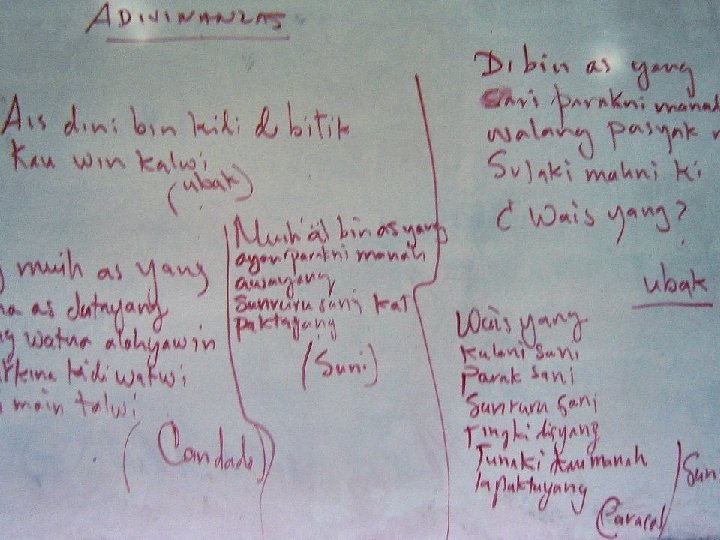 ADIVINANZAS
Ais dini bin kidi di bitik
Kau win kalwi
(ubak)
muih as yang
as datayang
watna alahyawin
kidi watwi
main talwi
(Candado)
Muih as bin as yang
ayan parakni manah
awayang
Sunruru sani kat
paktayang
(Suni)
Di bin as yang
Sari parakni manah
walang pasyak
Sulaki mahni ki
¿Wais yang?
ubak
Wais yang
Kulani suni
Parak sani
Sunruru sani
Tingki disyang
Tunaki kau manah
lapaktayang
(Caracol